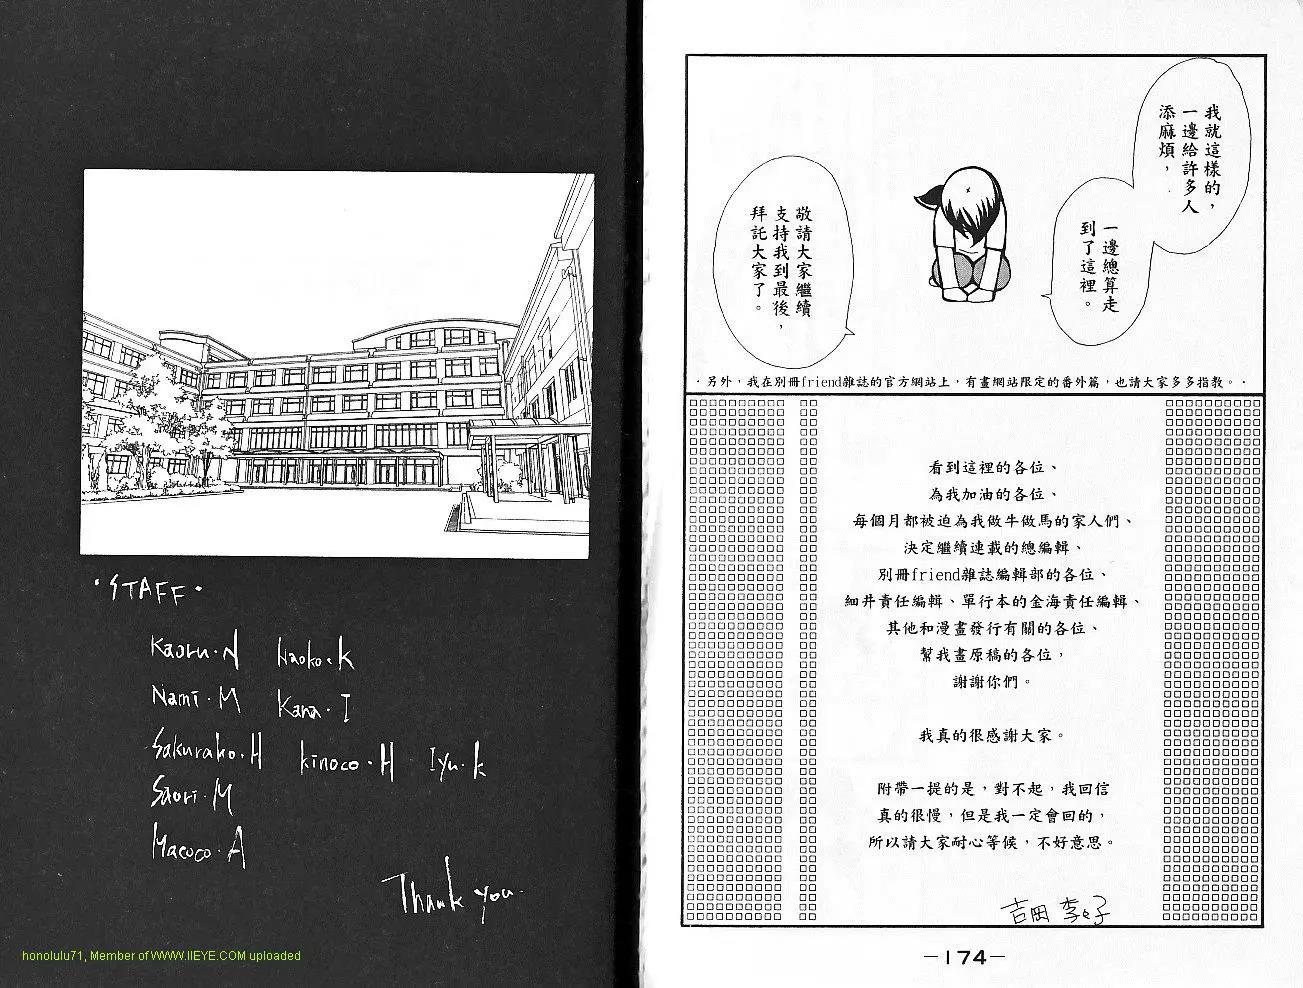 我就這樣的，
一邊給許多人
添麻煩，
一邊總算走
到了這裡。
敬請大家繼續
支持我到最後，
拜託大家了。
·另外，我在別冊friend雜誌的官方網站上，有畫網站限定的番外篇，也請大家多多指教。·
看到這裡的各位、
為我加油的各位、
每個月都被迫為我做牛做馬的家人們、
決定繼續連載的總編輯、
別冊friend雜誌編輯部的各位、
細井責任編輯、單行本的金海責任編輯、
其他和漫畫發行有關的各位、
幫我畫原稿的各位，
謝謝你們。
我真的很感謝大家。
附帶一提的是，對不起，我回信
真的很慢，但是我一定會回的，
所以請大家耐心等候，不好意思。
吉岡 李々子
—174—
·STAFF·
Kaoru·N Naoko·K
Nami·M Kana·I
Sakurako·H kinoco·H Iyu·k
Saori·M
Macoco·A
Thank you.
honolulu71, Member of WWW.IIEYE.COM uploaded